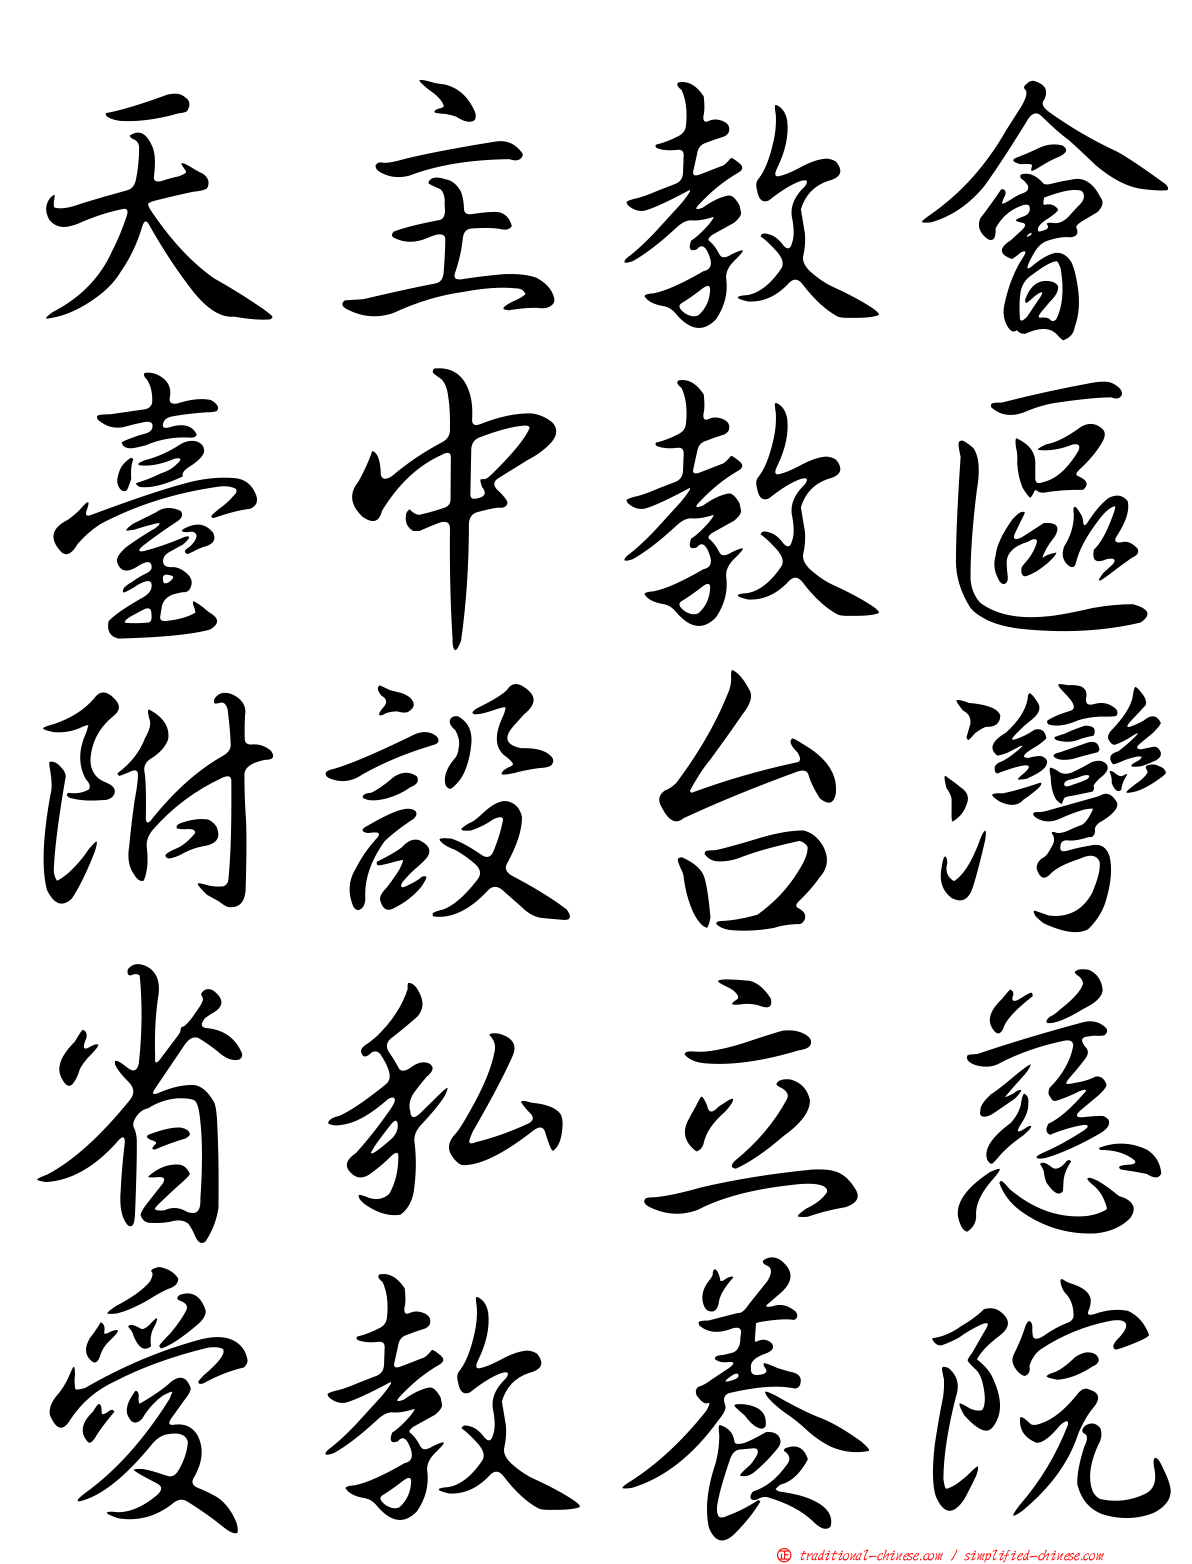 天主教會
臺中教區
附設台灣
省私立慈
愛教養院
正 traditional-chinese.com / simplified-chinese.com